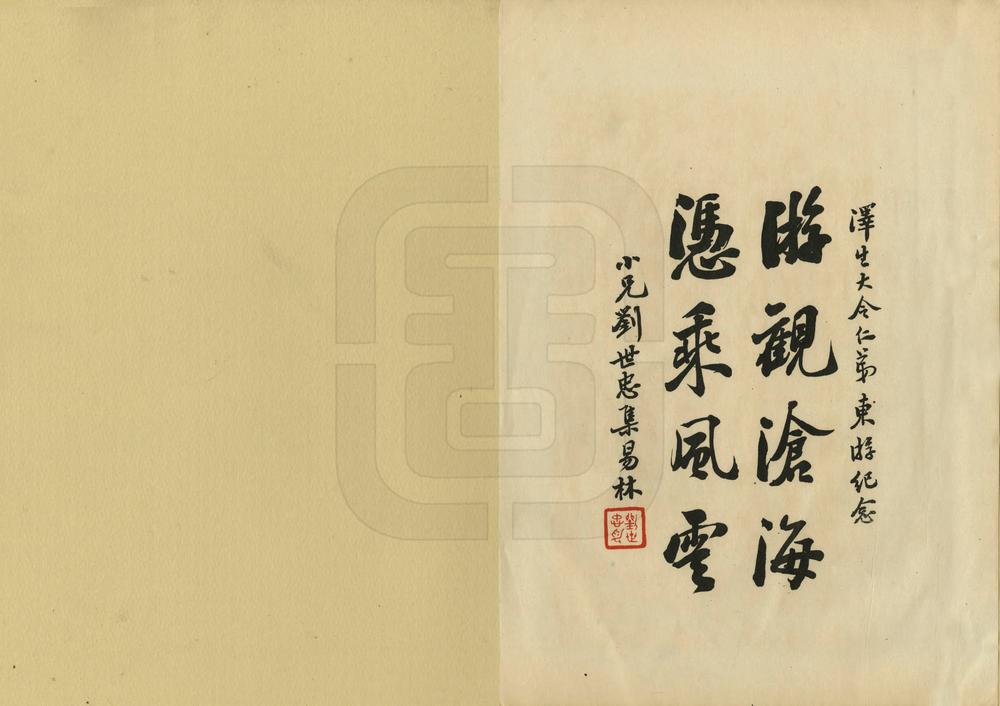 澤生大令仁弟東游紀念
游觀滄海
憑乘風雲
小兄劉世忠集易林
劉世忠印